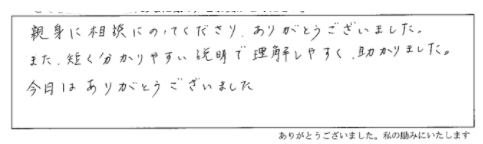 親身に相談にのってくださり、ありがとうございました。
また、短く分かりやすい説明で理解しやすく、助かりました。
今日はありがとうございました
ありがとうございました。私の励みにいたします